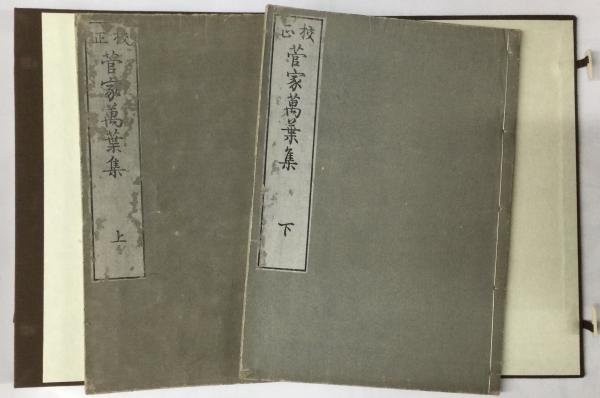 校正
菅家萬葉集
上
校正
菅家萬葉集
下